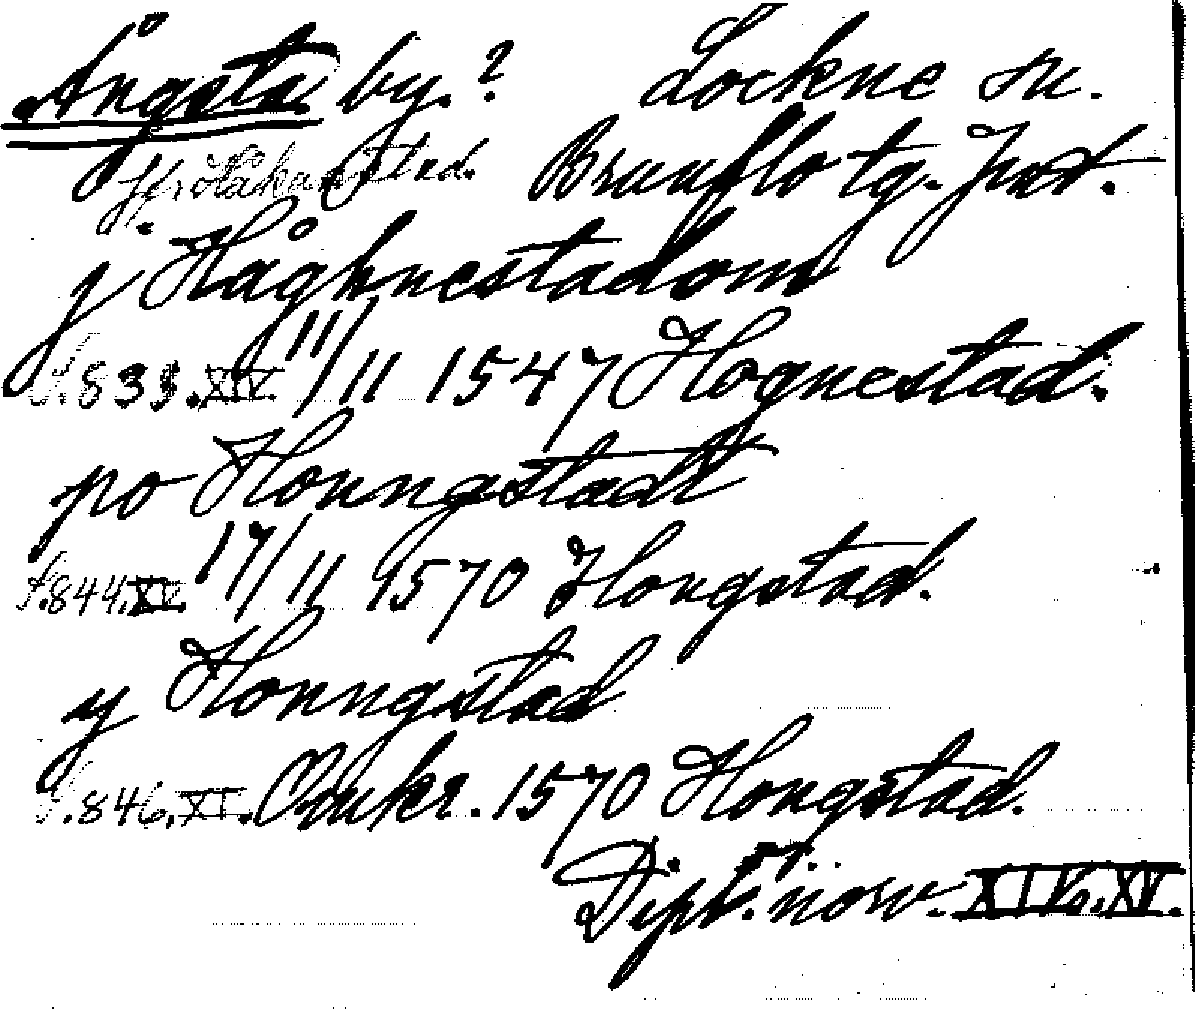 Ångsta by.? Lockne sn.
jfr Håkanstad. Brunflo tg. Jmt.
j Håghnestadom
S. 833. XIV. 11/11 1547 Hognestad.
po Honngstadt
S. 844. XV. 17/11 1570 Hongstad.
y Honngstad
S. 846. XV. Omkr. 1570 Hongstad.
Dipl. norv. XIV. XV.